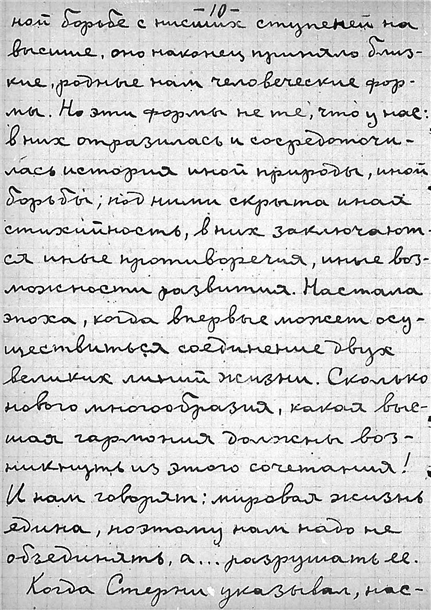 -10-
ной борьбе с низших ступеней на
высшие, оно наконец приняло близ-
кие, родные нам человеческие фор-
мы. Но эти формы не те, что у нас:
в них отразилась и сосредоточи-
лась история иной природы, иной
борьбы; под ними скрыта иная
стихийность, в них заключают-
ся иные противоречия, иные воз-
можности развития. Настала
эпоха, когда впервые может осу-
ществиться соединение двух
великих линий жизни. Сколько
нового многообразия, какая выс-
шая гармония должны воз-
никнуть из этого сочетания!
И нам говорят: мировая жизнь
едина, поэтому нам надо не
объединять, а... разрушать ее.
Когда Стерни указывал, нас-